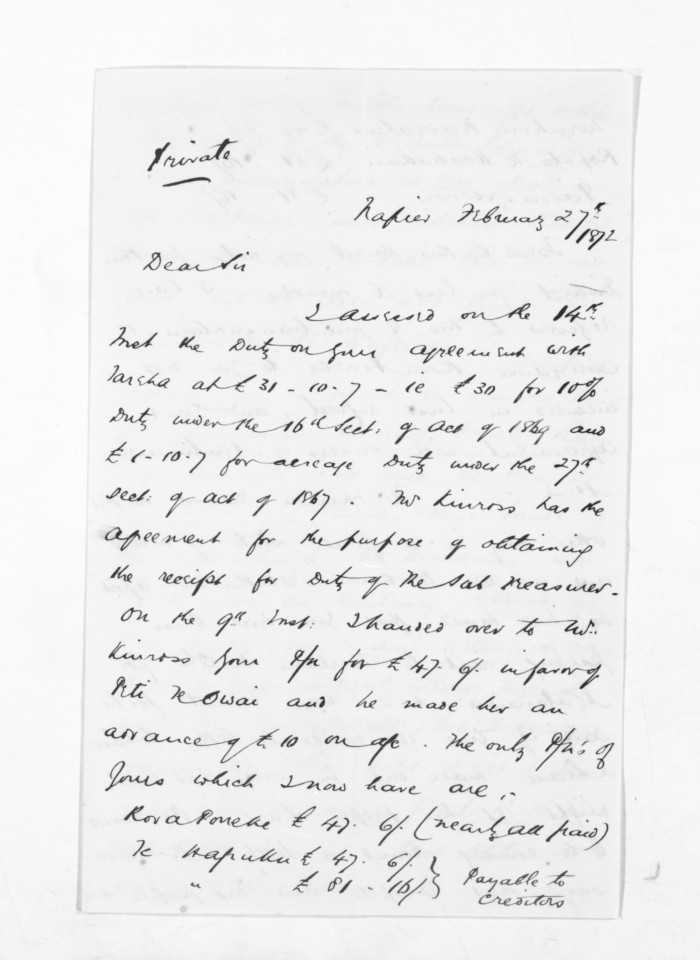 Private
Napier February 27th
1872
Dear Sir
I assessed on the 14th
Inst the Duty on your agreement with
Tareha at £31-10-7 - ie £30 for 10%
Duty under the 16th Sect: of Act of 1869 and
£1-10-7 for acreage Duty under the 27th
Sect: of Act of 1867. Mr Kinross has the
agreement for the purpose of obtaining
the receipt for Duty of the Sub Treasurer -
On the 9th Inst: I handed over to Mr.
Kinross your P/N for £47. 6/. in favor of
Peti Te Owai and he made her an
advance of £10 on a/c. The only P/N's of
yours which I now have are,-
Rora Poneke £47. 6/. (nearly all paid)
Te Hapuku £47. 6/.
" £81-16/. Payable to
Creditors